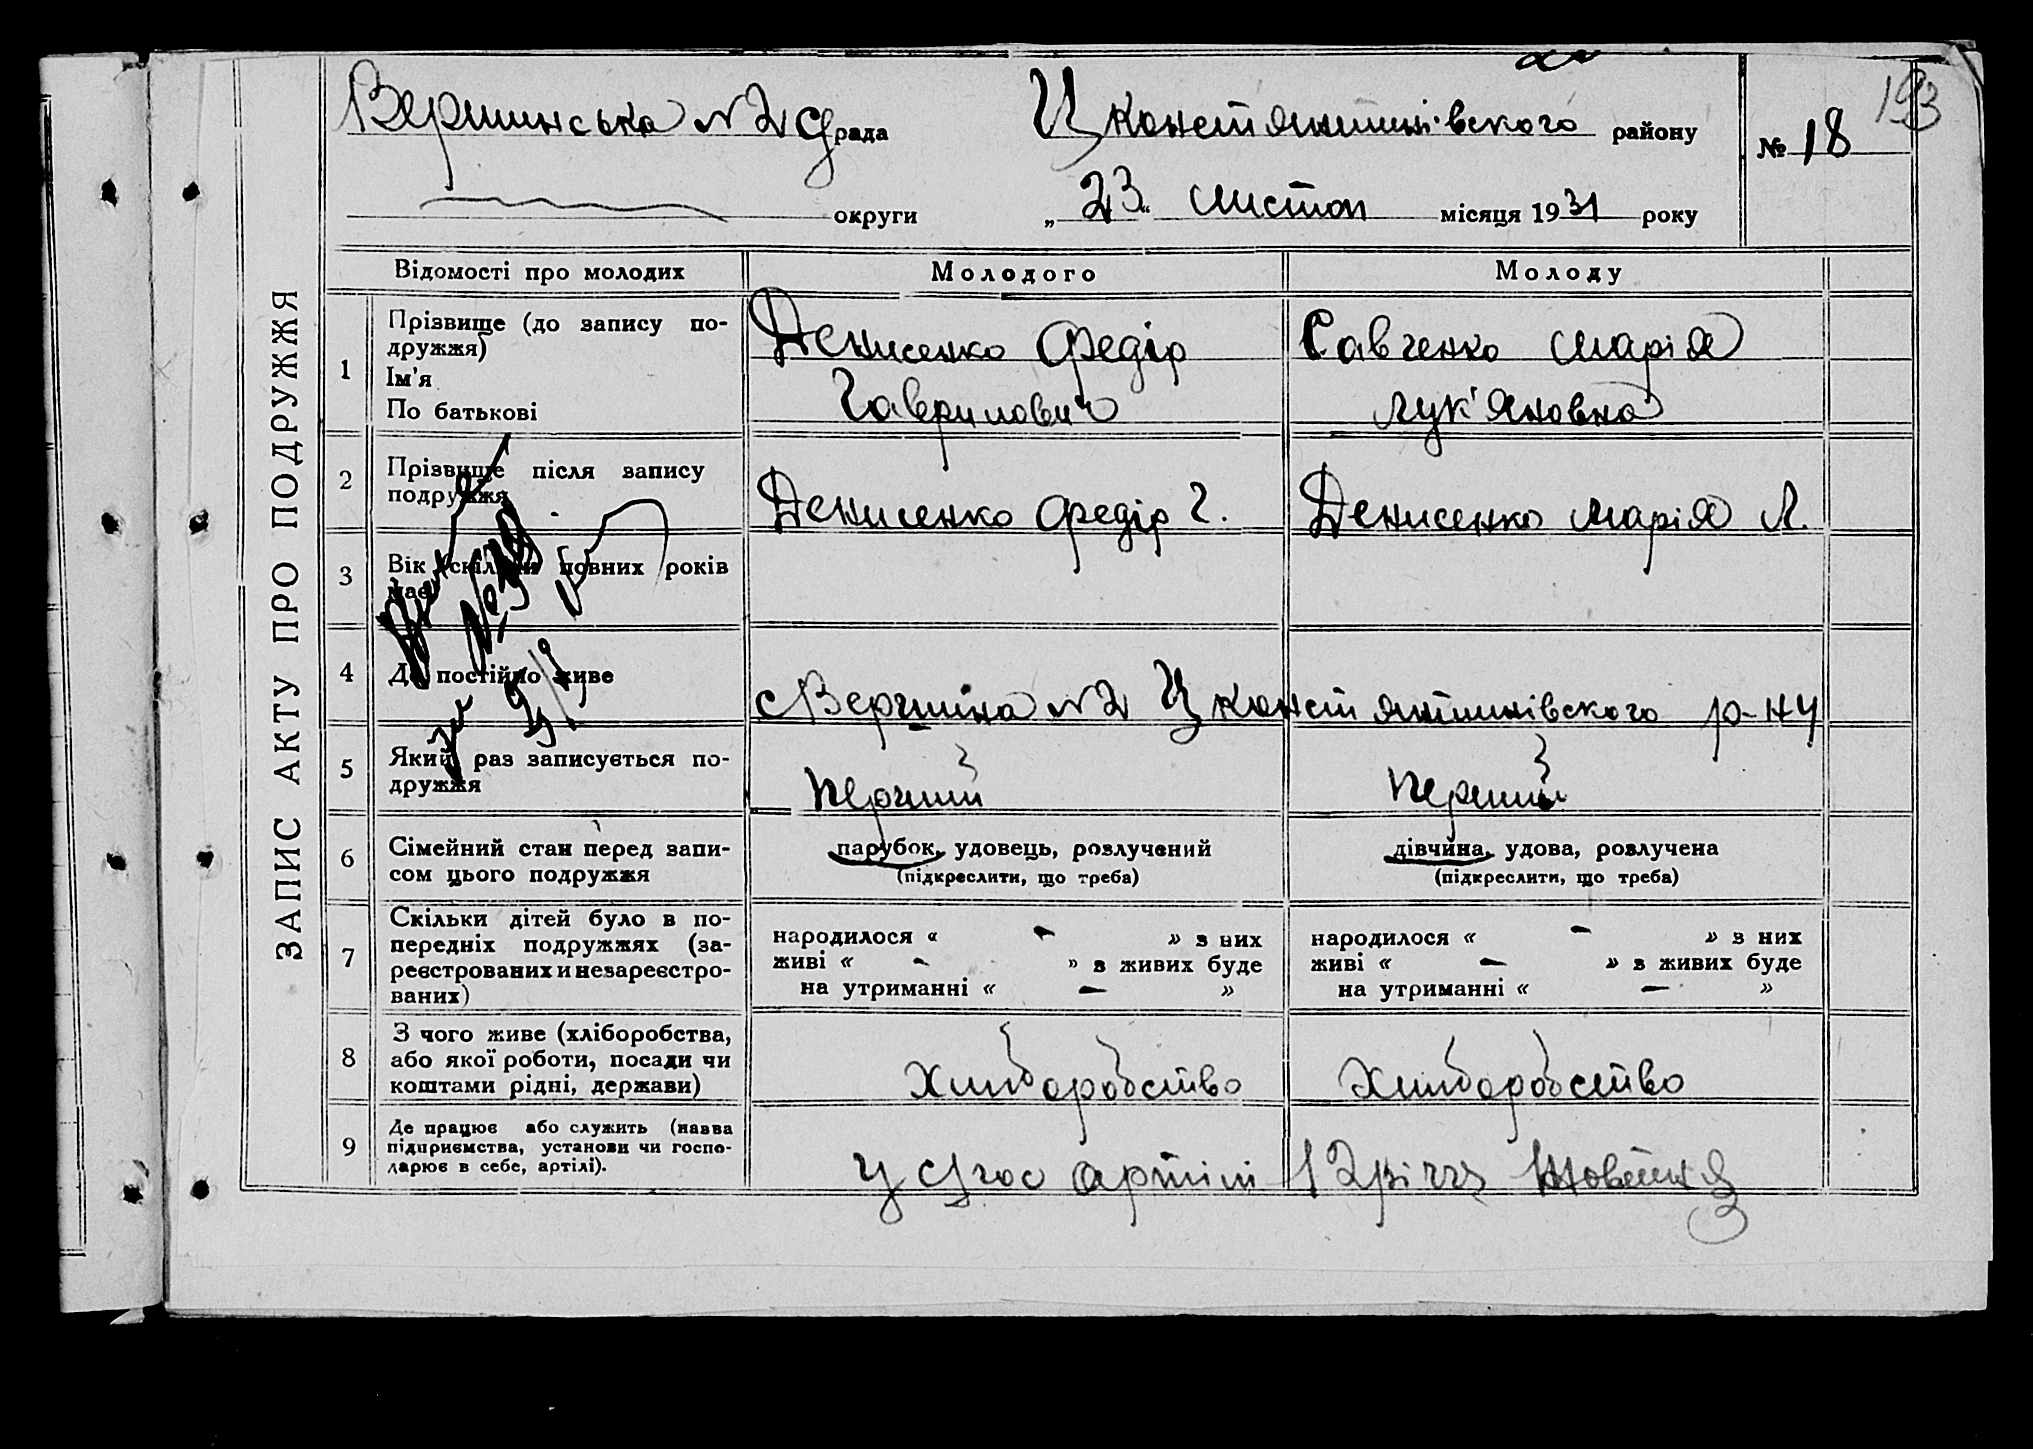 193
Вершинська №2 с/рада Ц Констянтинівського району № 18
округи „23“ листоп місяця 1931 року
ЗАПИС АКТУ ПРО ПОДРУЖЖЯ
Відомості про молодих Молодого Молоду
1 Прізвище (до запису по-
дружжя)
Ім'я
По батькові
Денисенко Федір
Гаврилович
Савченко Марія
Лук'яновна
2 Прізвище після запису
подружжя
Денисенко Федір Г. Денисенко Марія Л.
3 Вік (скільки повних років
має)
4 Де постійно живе
с Вершина №2 Ц Констянтинівського р-ну
5 Який раз записується по-
дружжя
перший перший
6 Сімейний стан перед запи-
сом цього подружжя
парубок, удовець, розлучений
(підкреслити, що треба)
дівчина, удова, розлучена
(підкреслити, що треба)
7 Скільки дітей було в по-
передніх подружжях (за-
реєстрованих и незареєстро-
ваних)
народилося « - » з них
живі « - » з живих буде
на утриманні « - »
народилося « - » з них
живі « - » з живих буде
на утриманні « - »
8 З чого живе (хліборобства,
або якої роботи, посади чи
коштами рідні, держави)
Хліборобство Хліборобство
9 Де працює або служить (назва
підприємства, установи чи госпо-
дарює в себе, артілі).
у с/гос артілі 12 річчя Жовтня